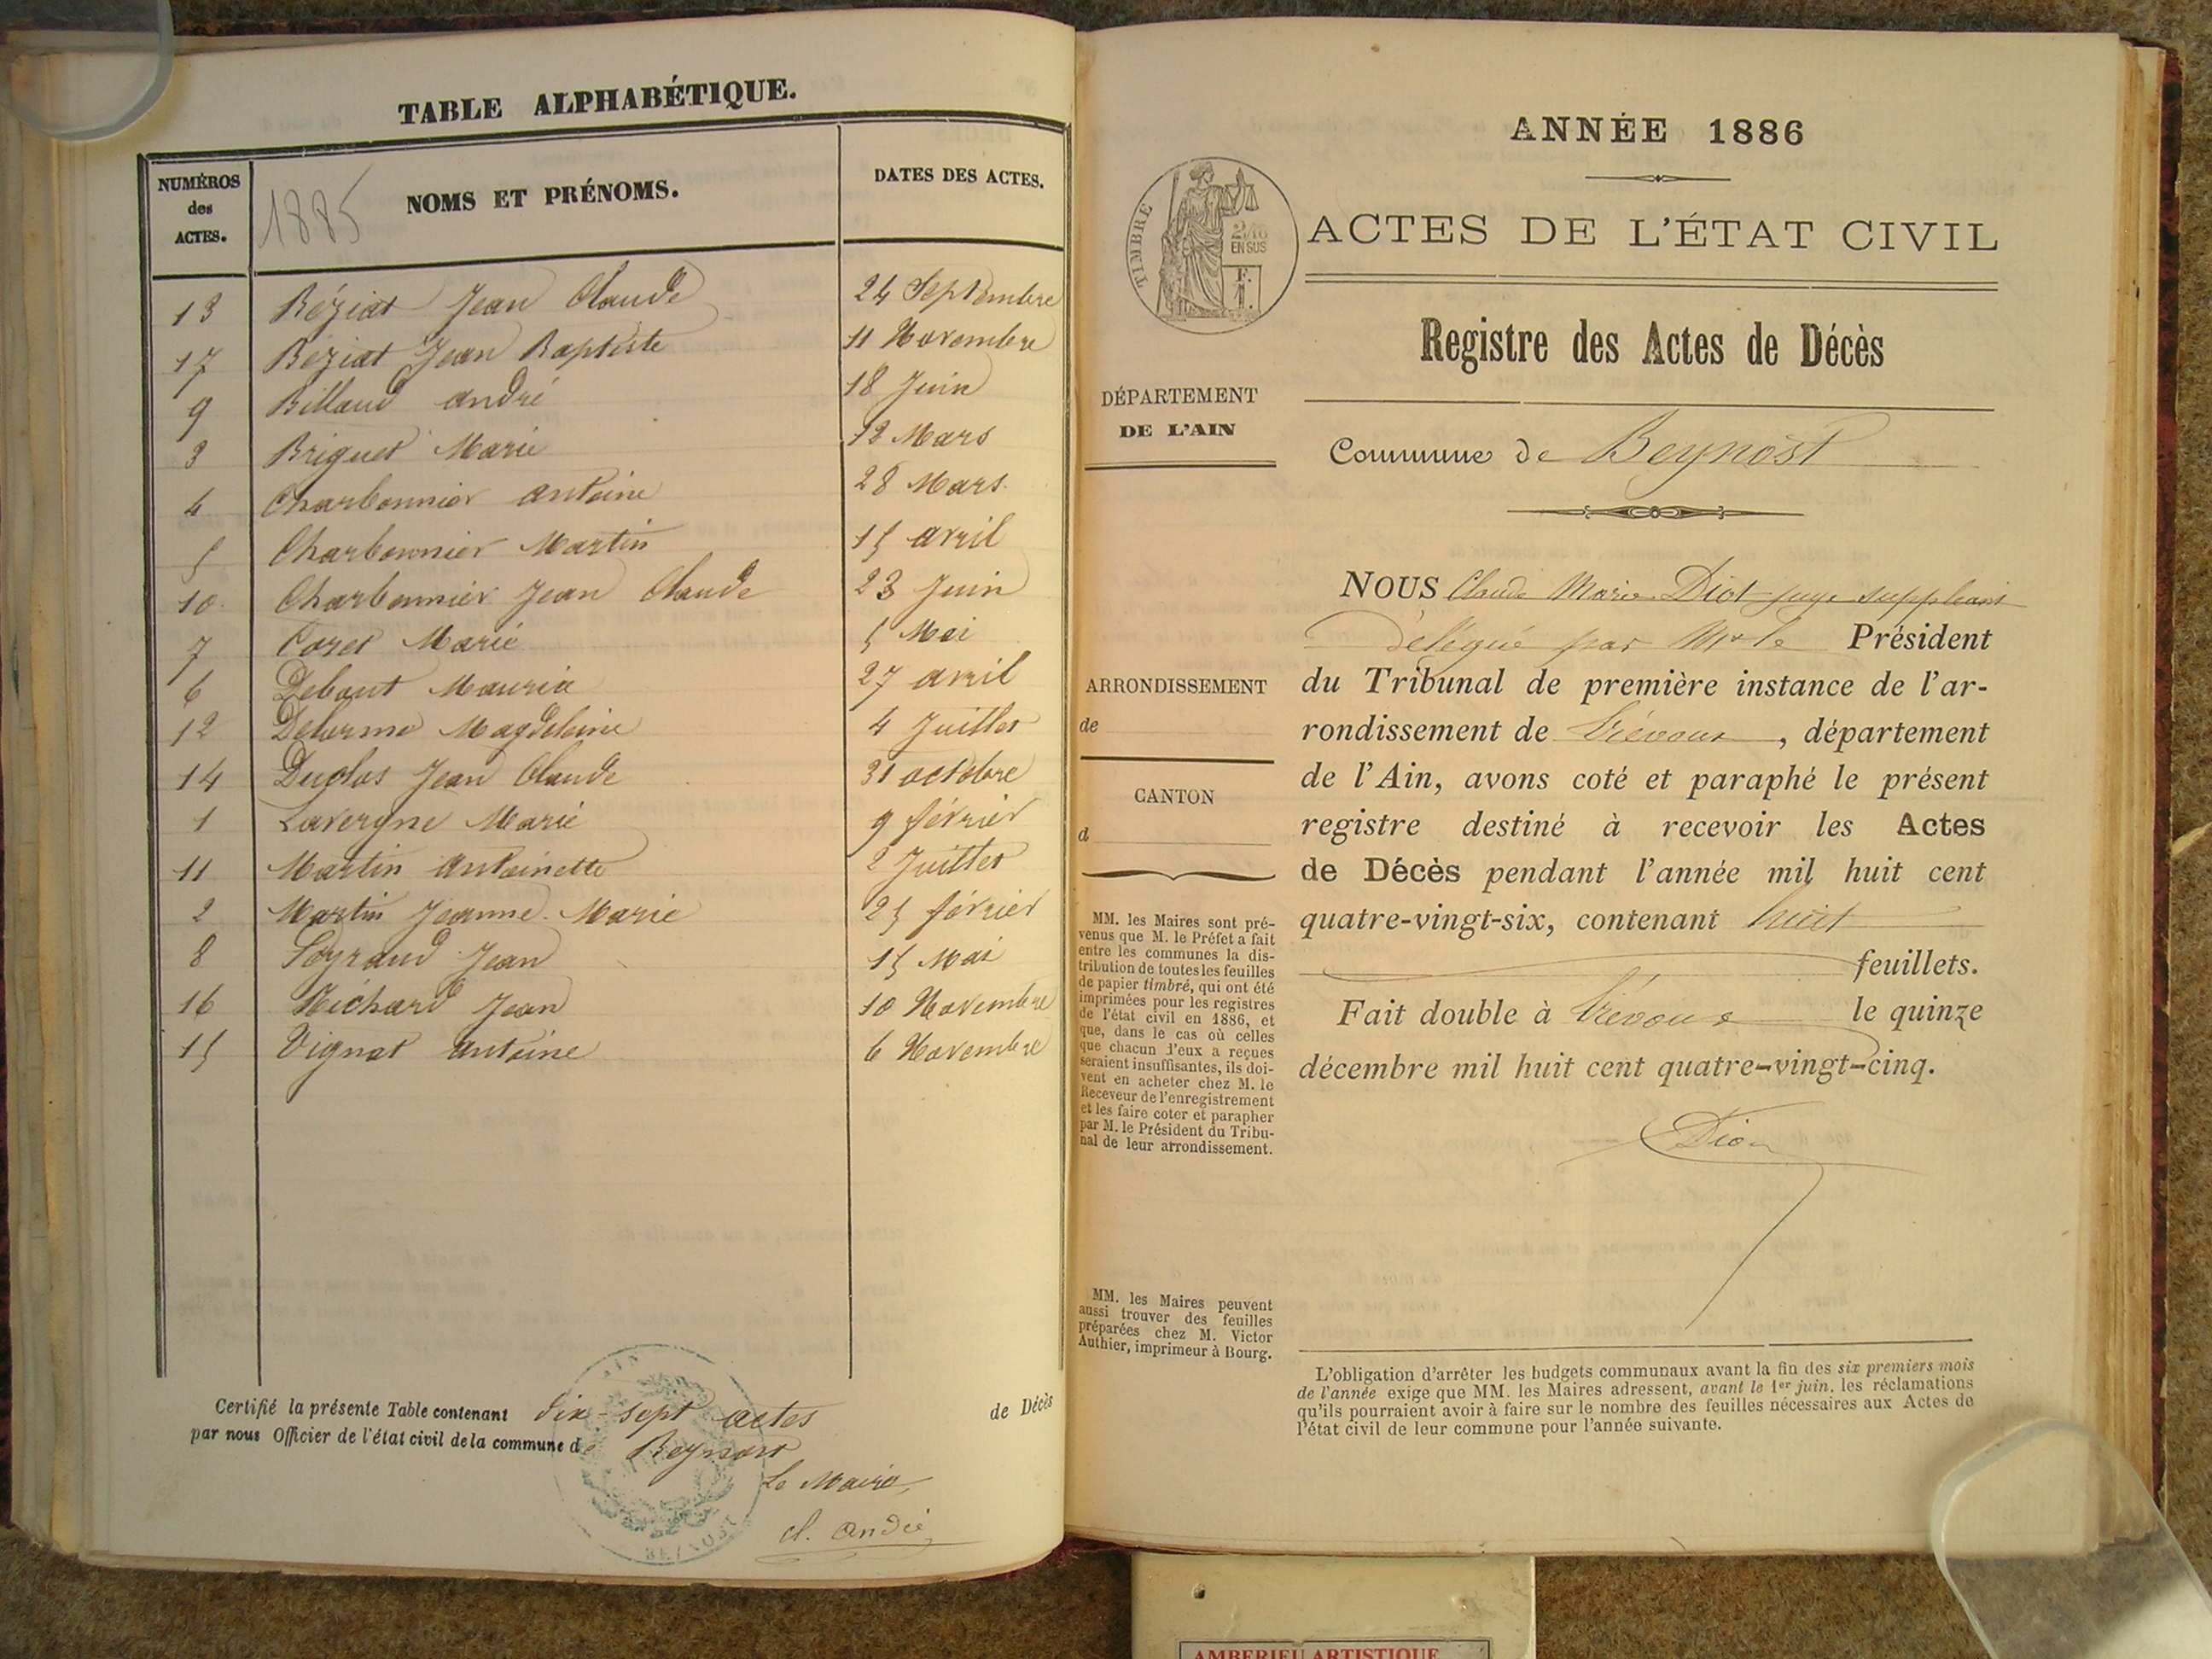 TABLE ALPHABÉTIQUE.
NUMÉROS des ACTES.
1885
NOMS ET PRÉNOMS.
DATES DES ACTES.
13 Béziat Jean Claude 24 Septembre
17 Béziat Jean Baptiste 11 Novembre
9 Billaud andré 18 Juin
3 Briguet Marie 12 Mars
4 Charbonnier antoine 28 Mars
5 Charbonnier Martin 15 avril
10 Charbonnier Jean Claude 23 Juin
7 Coret Marie 5 Mai
6 Debout 27 avril
12 Delorme Magdeleine 4 Juillet
14 Duclos Jean Claude 31 octobre
1 Lavergne Marie 9 février
11 Martin antoinette 2 Juillet
2 Martin Jeanne Marie 25 février
8 Jean 15 Mai
16 Richard Jean 10 Novembre
15 Vignat antoine 6 Novembre
Certifié la présente Table contenant dix-sept actes de Décès
par nous Officier de l'état civil de la commune de Beynost
Le Maire,
cl. andré
AIN
BEYNOST
ANNÉE 1886
TIMBRE
2/10
EN SUS
ACTES DE L'ÉTAT CIVIL
Registre des Actes de Décès
DÉPARTEMENT
DE L'AIN
Commune de Beynost
NOUS Claude Marie Diot juge suppléant
délégué par Mr le Président
du Tribunal de première instance de l'ar-
rondissement de Trévoux, département
de l'Ain, avons coté et paraphé le présent
registre destiné à recevoir les Actes
de Décès pendant l'année mil huit cent
quatre-vingt-six, contenant huit
feuillets.
Fait double à Trévoux le quinze
décembre mil huit cent quatre-vingt-cinq.
Diot
ARRONDISSEMENT
de
CANTON
d
MM. les Maires sont pré-
venus que M. le Préfet a fait
entre les communes la dis-
tribution de toutes les feuilles
de papier timbré, qui ont été
imprimées pour les registres
de l'état civil en 1886, et
que, dans le cas où celles
que chacun d'eux a reçues
seraient insuffisantes, ils doi-
vent en acheter chez M. le
Receveur de l'enregistrement
et les faire coter et parapher
par M. le Président du Tribu-
nal de leur arrondissement.
MM. les Maires peuvent
aussi trouver des feuilles
préparées chez M. Victor
Authier, imprimeur à Bourg.
L'obligation d'arrêter les budgets communaux avant la fin des six premiers mois
de l'année exige que MM. les Maires adressent, avant le 1er juin, les réclamations
qu'ils pourraient avoir à faire sur le nombre des feuilles nécessaires aux Actes de
l'état civil de leur commune pour l'année suivante.
AMBERIEU ARTISTIQUE